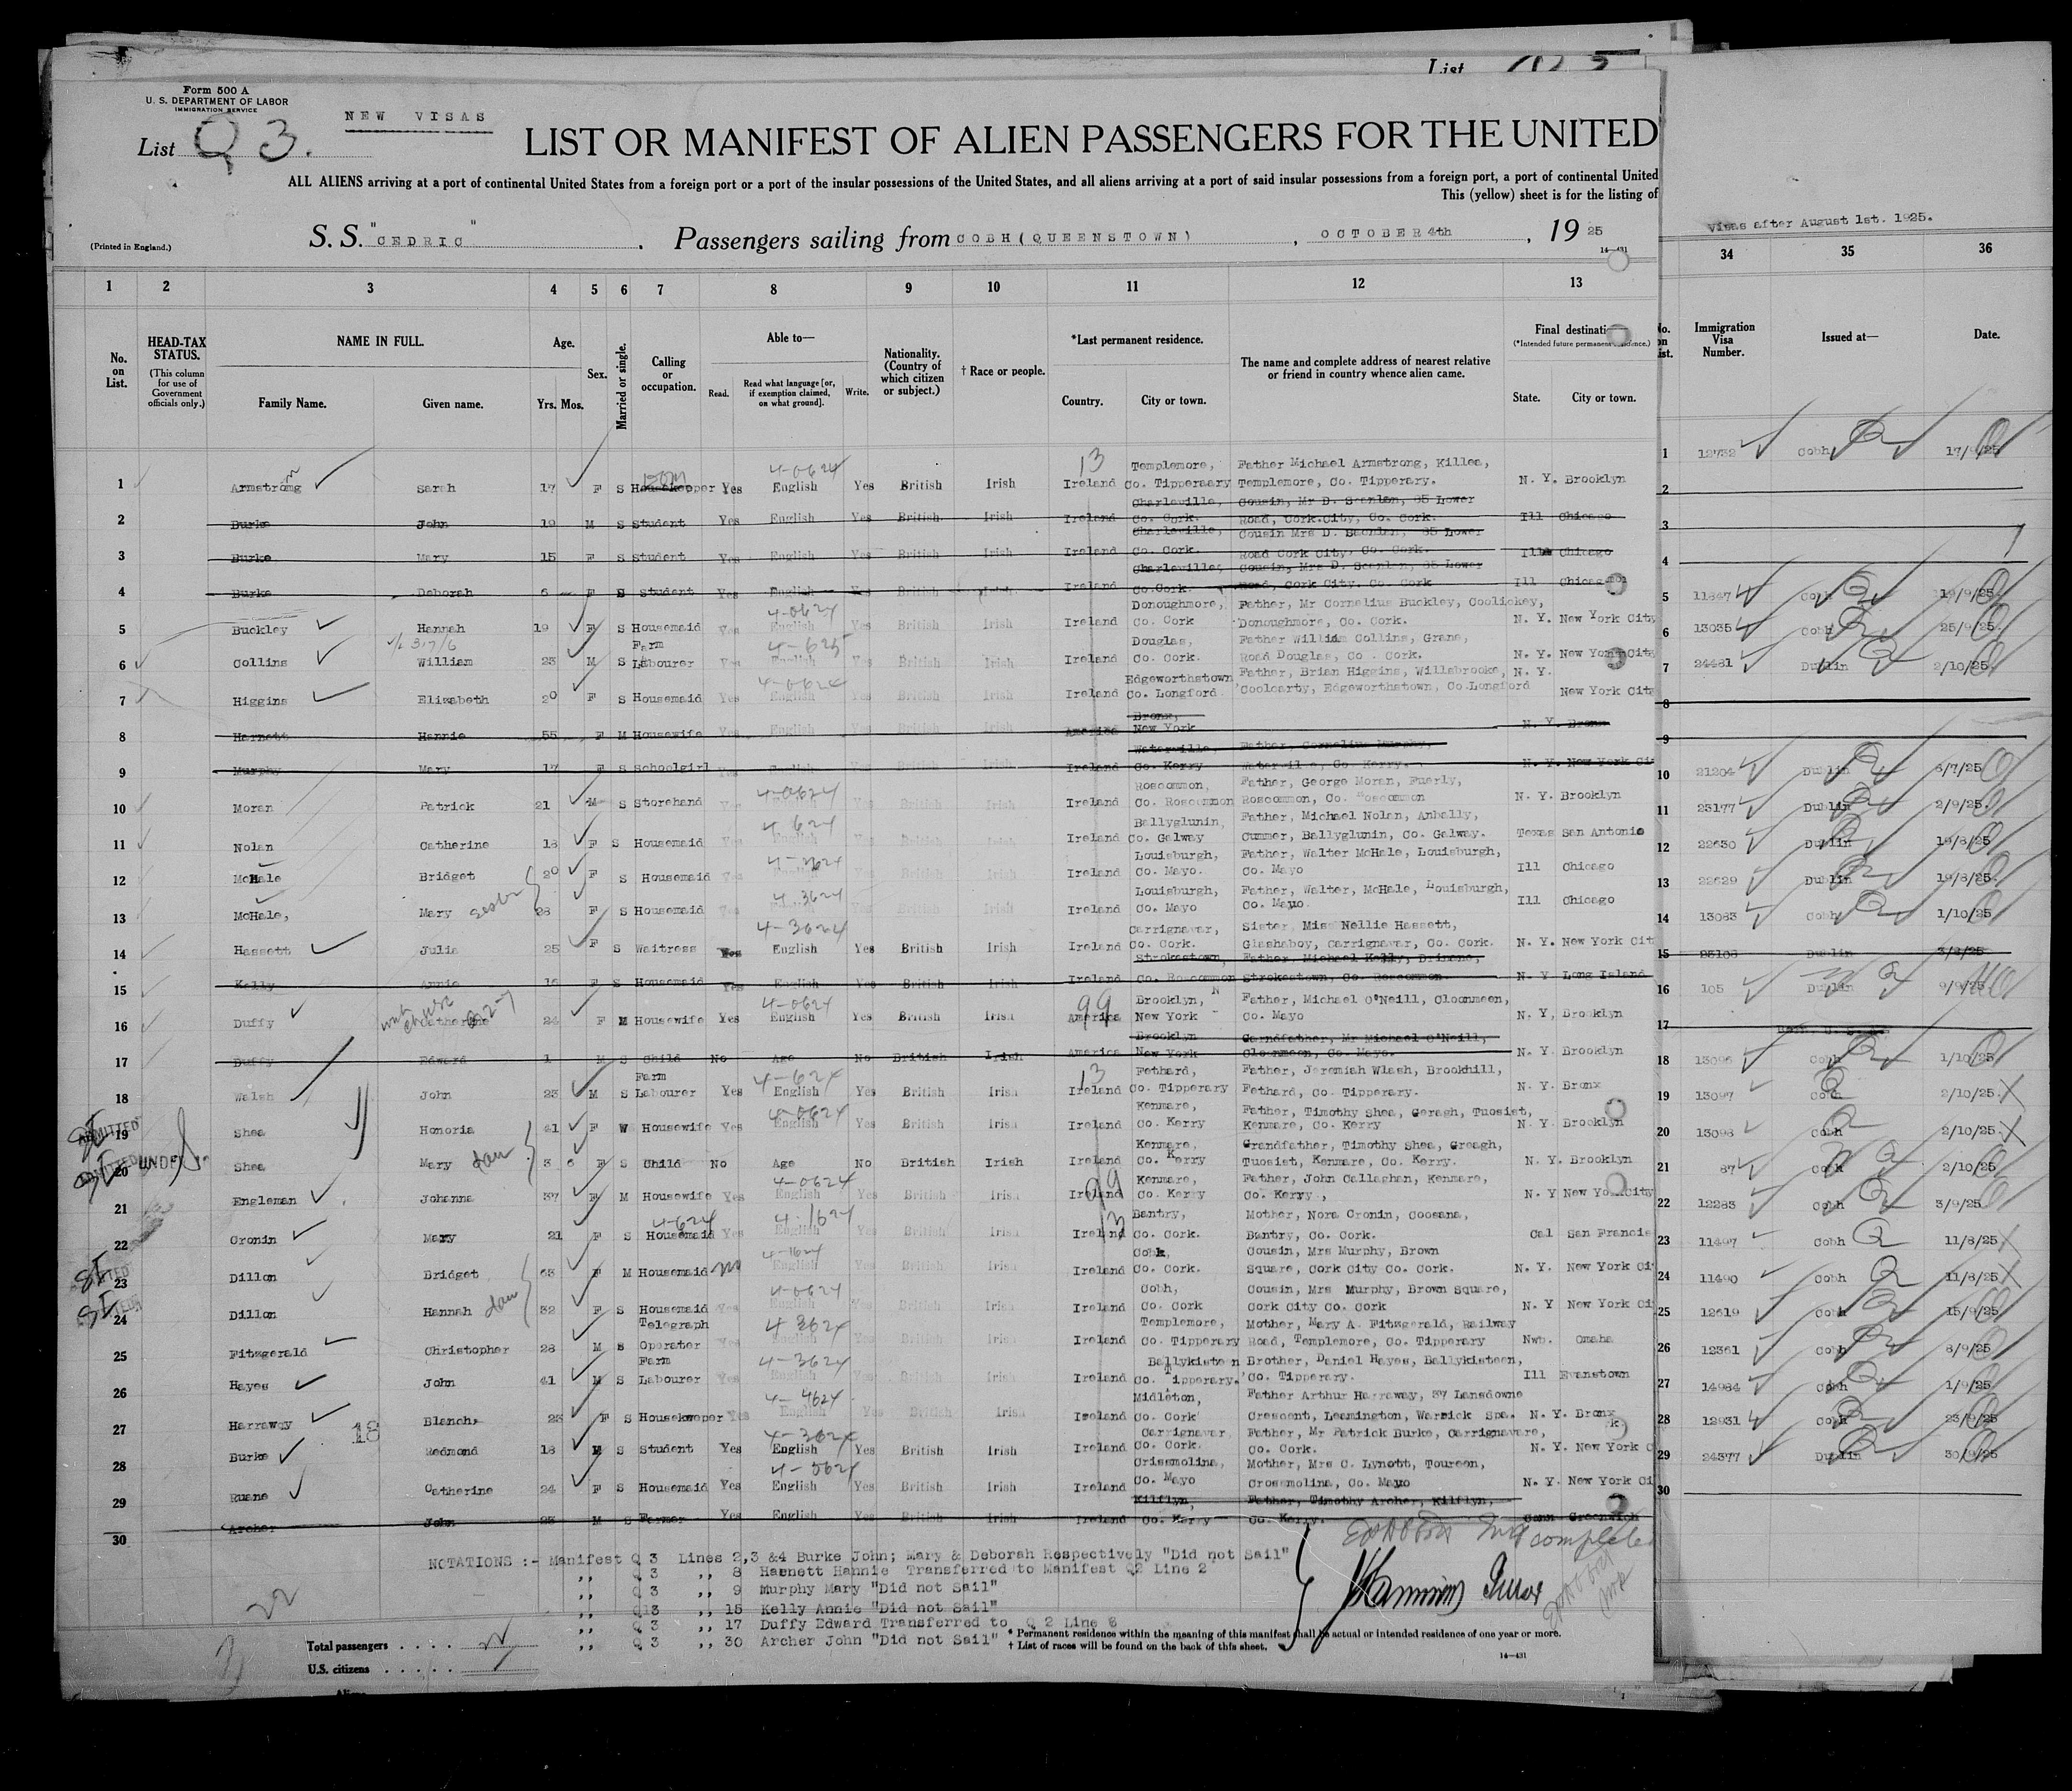 List
Form 500 A
U. S. DEPARTMENT OF LABOR
IMMIGRATION SERVICE
NEW VISAS
List Q 3.
LIST OR MANIFEST OF ALIEN PASSENGERS FOR THE UNITED
ALL ALIENS arriving at a port of continental United States from a foreign port or a port of the insular possessions of the United States, and all aliens arriving at a port of said insular possessions from a foreign port, a port of continental United
This (yellow) sheet is for the listing of
Visas after August 1st. 1925.
(Printed in England.)
S. S. "CEDRIC". Passengers sailing from COBH (QUEENSTOWN), OCTOBER 4th, 19 25
14—431
1 2 3 4 5 6 7 8 9 10 11 12 13 34 35 36
No. on List. HEAD-TAX STATUS. (This column for use of Government officials only.) NAME IN FULL. Family Name. Given name. Age. Yrs. Mos. Sex. Married or single. Calling or occupation. Able to— Read. Read what language [or, if exemption claimed, on what ground]. Write. Nationality. (Country of which citizen or subject.) † Race or people. *Last permanent residence. Country. City or town. The name and complete address of nearest relative or friend in country whence alien came. Final destination (*Intended future permanent residence.) State. City or town. Immigration Visa Number. Issued at— Date.
1 Armstromg Sarah 17 F S Housekepper Yes English Yes British Irish Ireland Templemore, Co. Tipperaary Father Michael Armstrong, Killea, Templemore, Co. Tipperary. N. Y. Brooklyn 1 12732 Cobh 17/9/25
2 Burke John 19 M S Student Yes English Yes British Irish Ireland Charleville, Co. Cork. Cousin, Mr D. Scanlon, 85 Lower Road, Cork.City, Co. Cork. Ill Chicago 2
3 Burke Mary 15 F S Student Yes English Yes British Irish Ireland Charleville, Co. Cork. Cousin Mrs D. Sacnlan, 85 Lower Road Cork City, Co. Cork. Ill Chicago 3
4 Burke Deborah 6 F S Student Yes English British Irish Ireland Charleville, Co.Cork. Cousin, Mrs D. Scanlon, 85 Lower Road, Cork City. Co. Cork Ill Chicago 4
5 Buckley Hannah 19 F S Housemaid Yes English Yes British Irish Ireland Donoughmore, Co. Cork Father, Mr Cornelius Buckley, Coolickey, Donoughmore, Co. Cork. N. Y. New York City 5 11847 Cobh 19/9/25
6 Collins William 23 M S Farm Labourer Yes English Yes British Irish Ireland Douglas, Co. Cork. Father William Collins, Grane, Road Douglas, Co. Cork. N. Y. New York City 6 13035 Cobh 25/9/25.
7 Higgins Elizabeth 20 F S Housemaid Yes English Yes British Irish Ireland Edgeworthstown Co. Longford. Father, Brian Higgins, Willsbrooke, Cooloarty, Edgeworthstown, Co.Longford N. Y. New York City 7 24481 Dublin 2/10/25.
8 Harnett Hannie 55 F M Housewife Yes English Yes British Irish America Bronx, New York N. Y. Bronx 8
9 Murphy Mary 17 F S Schoolgirl Yes English Yes British Irish Ireland Waterville, Co. Kerry Father, Cornelius Murphy, Waterville, Co. Kerry. N. Y. New York Ci 9
10 Moran Patrick 21 M S Storehand Yes English Yes British Irish Ireland Roscommon, Co. Roscommon Father, George Moran, Fuerly, Roscommon, Co. Roscommon N. Y. Brooklyn 10 21204 Dublin 6/7/25
11 Nolan Catherine 18 F S Housemaid Yes English Yes British Irish Ireland Ballyglunin, Co. Galway Father, Michael Nolan, Anbally, Cummer, Ballyglunin, Co. Galway. Texas San Antonio 11 23177 Dublin 2/9/25
12 McHale Bridget 20 F S Housemaid Yes English Yes British Irish Ireland Louisburgh, Co. Mayo. Father, Walter McHale, Louisburgh, Co. Mayo Ill Chicago 12 22630 Dublin 19/8/25
13 McHale, Mary sister 28 F S Housemaid Yes English Yes British Irish Ireland Louisburgh, Co. Mayo Father, Walter, McHale, Louisburgh, Co. Mayo. Ill Chicago 13 22629 Dublin 19/8/25
14 Hassett Julia 25 F S Waitress Yes English Yes British Irish Ireland Carrignavar, Co. Cork. Sister Miss Nellie Hassett, Glashaboy, Carrignavar, Co. Cork. N. Y. New York Cit 14 13083 Cobh 1/10/25
15 Kelly Annie 16 F S Housemaid Yes English Yes British Irish Ireland Strokestown, Co. Roscommon Father, Michael Kelly, Drinane, Strokestown, Co. Roscommon. N. Y Long Island 15 23106 Dublin 3/8/25
16 Duffy Catherine 24 F M Housewife Yes English Yes British Irish America Brooklyn, New York Father, Michael O'Neill, Cloonmeen, Co. Mayo N. Y, Brooklyn 16 105 Dublin 9/9/25
17 Duffy Edward 1 M S Child No Age No British Irish America Brooklyn New York Garndfather, Mr Michael O'Neill, Cloonmeen, Co. Mayo. N. Y. Brooklyn 17
18 Walsh John 23 M S Farm Labourer Yes English Yes British Irish Ireland Fethard, Co. Tipperary Father, Jeremiah Wlash, Brookhill, Fethard, Co. Tipperary. N. Y. Bronx 18 13096 Cobh 1/10/25
ADMITTED SI 19 Shea Honoria 41 F W Housewife Yes English Yes British Irish Ireland Kenmare, Co. Kerry Father, Timothy Shea, Geragh, Tuosist, Kenmare, Co. Kerry N. Y. Brooklyn 19 13097 Cobh 2/10/25
ADMITTED SI 20 UNDER Shea Mary dau 3 6 F S Child No Age No British Irish Ireland Kenmare, Co. Kerry Grandfather, Timothy Shea, Greagh, Tuosist, Kenmare, Co. Kerry. N. Y. Brooklyn 20 13098 Cobh 2/10/25
21 Engleman Johanna 37 F M Housewife Yes English Yes British Irish Ireland Kenmare, Co. Kerry Father, John Callaghan, Kenmare, Co. Kerry, N. Y New York City 21 87 Cobh 2/10/25
22 Cronin Mary 21 F S Housemaid Yes English Yes British Irish Ireland Bantry, Co. Cork. Mother, Nora Cronin, Cooeana, Bantry, Co. Cork. Cal San Francis 22 12283 Cobh 3/9/25
SI 23 Dillon Bridget 63 F M Housemaid no English Yes British Irish Ireland Cobh, Co. Cork. Cousin, Mrs Murphy, Brown Square, Cork City Co. Cork. N. Y. New York Ci 23 11497 Cobh 11/8/25
SI 24 Dillon Hannah dau 32 F S Housemaid Yes English Yes British Irish Ireland Cobh, Co. Cork Cousin, Mrs Murphy, Brown Square, Cork City Co. Cork N. Y New York Ci 24 11490 Cobh 11/8/25
25 Fitzgerald Christopher 28 M S Telegraph Operater Yes English Yes British Irish Ireland Templemore, Co. Tipperary Mother, Mary A. Fitzgerald, Railway Road, Templemore, Co. Tipperary Neb. Omaha 25 12619 Cobh 15/9/25
26 Hayes John 41 M S Farm Labourer Yes English Yes British Irish Ireland Ballykisteen Co. Tipperary. Brother, Daniel Hayes, Ballykisteen, Co. Tipperary. Ill Evanstown 26 12361 Cobh 8/9/25
27 Harraway Blanch 23 F S Housekeeper Yes English Yes British Irish Ireland Midleton, Co. Cork Father Arthur Harraway, 37 Lansdowne Crescent, Leamington, Warwick Spa. N. Y. Bronx 27 14984 Cobh 1/9/25
28 Burke 18 Redmond 18 M S Student Yes English Yes British Irish Ireland Carrignavar, Co. Cork. Father, Mr Patrick Burke, Carrignavare, Co. Cork. N. Y. New York C 28 12931 Cobh 23/9/25
29 Ruane Catherine 24 F S Housemaid Yes English Yes British Irish Ireland Crissmolina, Co. Mayo Mother, Mrs C. Lynott, Toureen, Crossmolina, Co. Mayo N. Y. New York Ci 29 24377 Dublin 30/9/25
30 Archer John 25 M S Farmer Yes English Yes British Irish Ireland Kilflyn, Co. Kerry Father, Timothy Archer, Kilflyn, Co. Kerry. Conn Greenwich 30
NOTATIONS :- Manifest Q 3 Lines 2,3 &4 Burke John; Mary & Deborah Respectively "Did not Sail"
,, Q 3 ,, 8 Harnett Hannie Transferred to Manifest Q2 Line 2
,, Q 3 ,, 9 Murphy Mary "Did not Sail"
,, Q 3 ,, 15 Kelly Annie "Did not Sail"
,, Q 3 ,, 17 Duffy Edward Transferred to Q 2 Line 6
,, Q 3 ,, 30 Archer John "Did not Sail"
Total passengers
U.S. citizens
* Permanent residence within the meaning of this manifest shall be actual or intended residence of one year or more.
† List of races will be found on the back of this sheet.
14—431